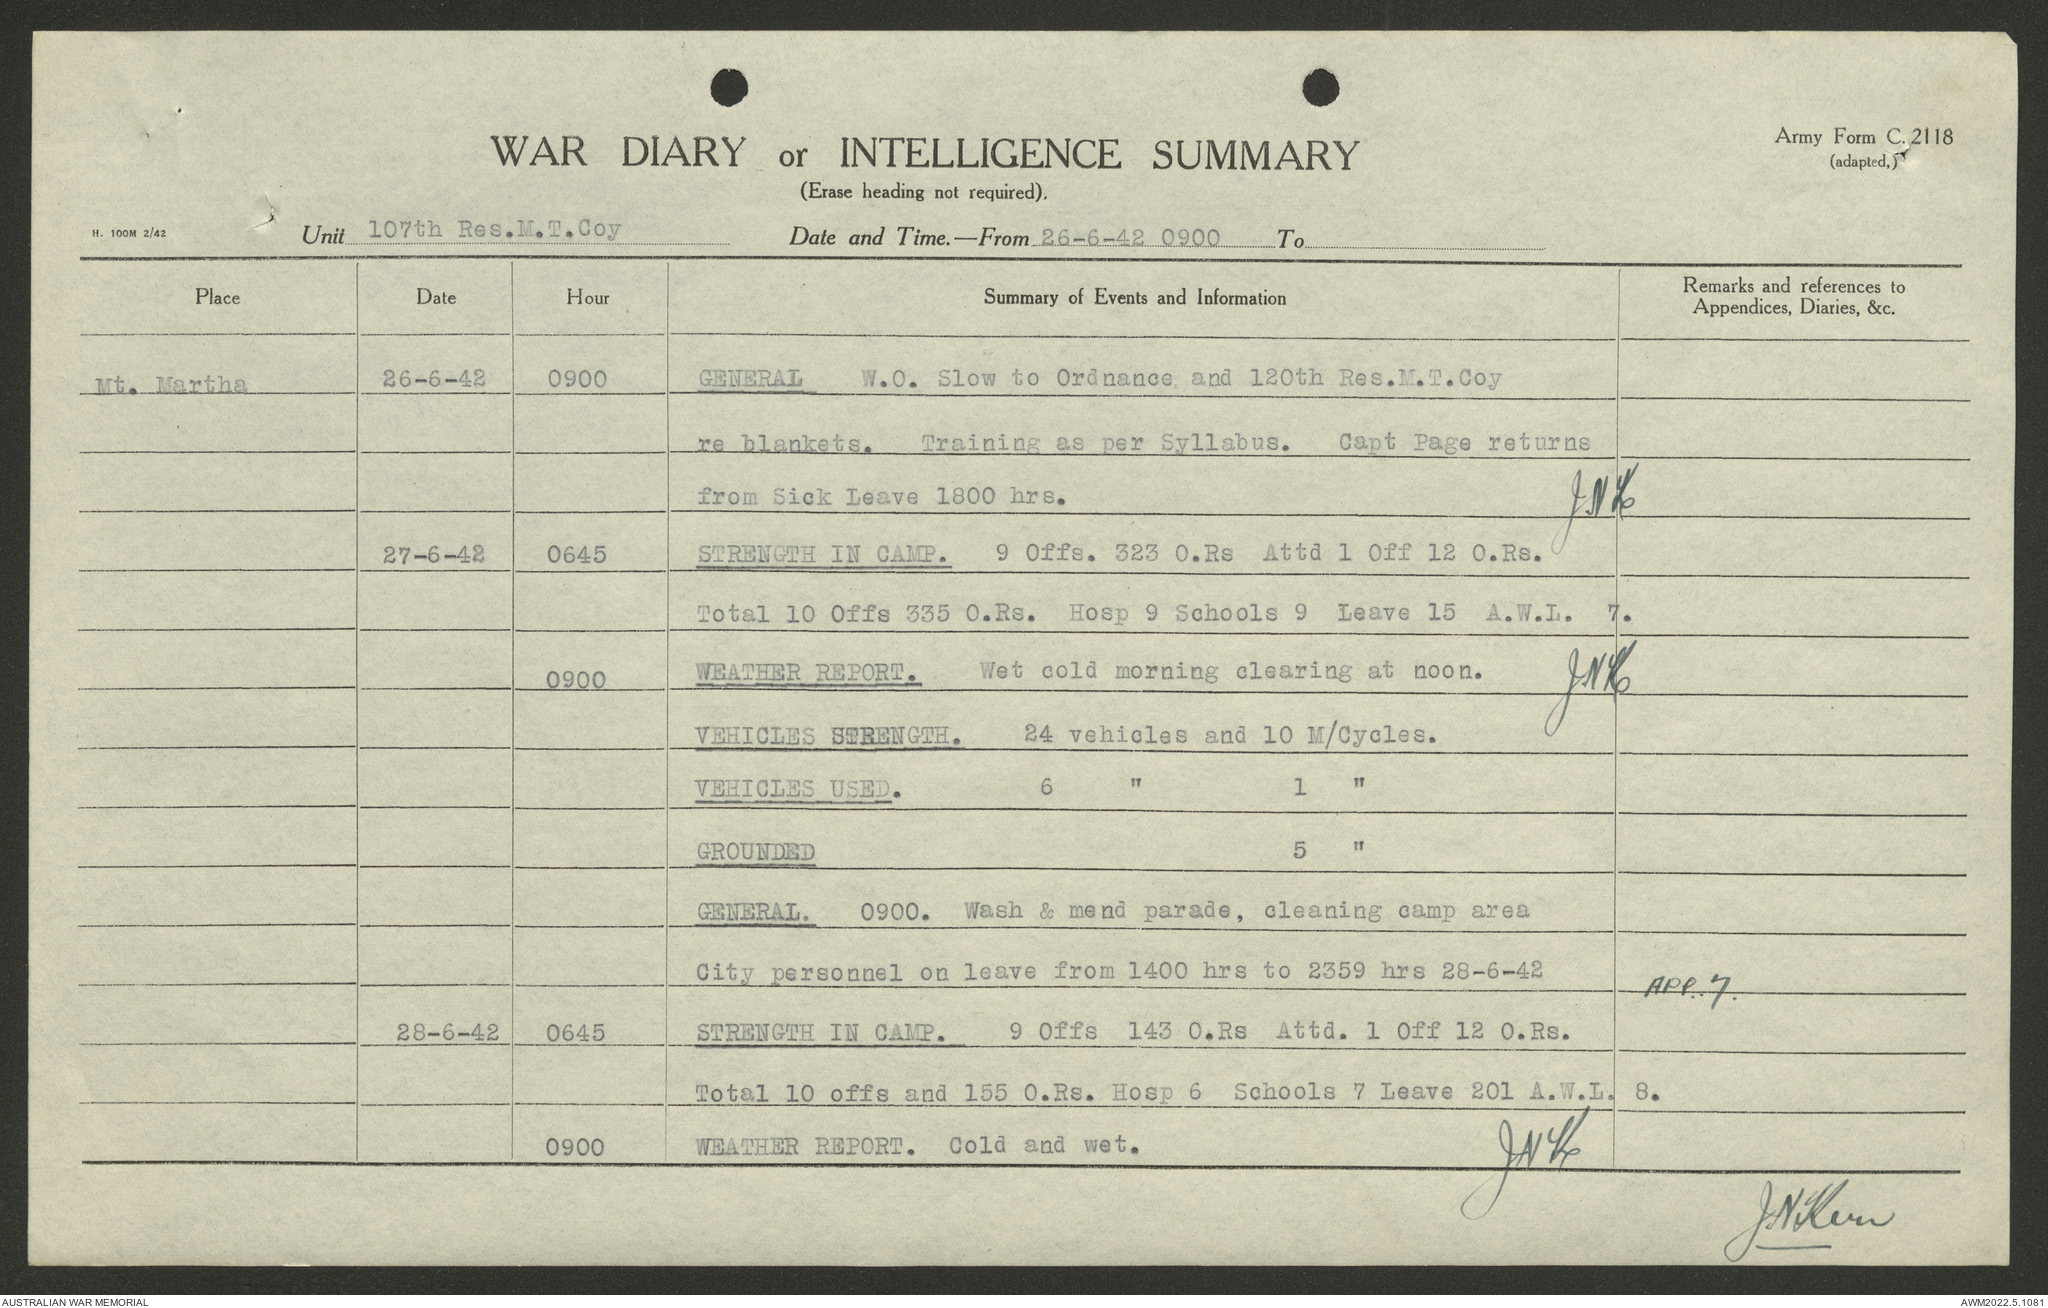 WAR DIARY or INTELLIGENCE SUMMARY
(Erase heading not required).
Army Form C. 2118
(adapted,)
H. 100M 2/42
Unit 107th Res.M.T.Coy Date and Time.—From 26-6-42 0900 To
Place Date Hour Summary of Events and Information Remarks and references to Appendices, Diaries, &c.
Mt. Martha 26-6-42 0900 GENERAL W.O. Slow to Ordnance and 120th Res.M.T.Coy
re blankets. Training as per Syllabus. Capt Page returns
from Sick Leave 1800 hrs. JNK
27-6-42 0645 STRENGTH IN CAMP. 9 Offs. 323 O.Rs Attd 1 Off 12 O.Rs.
Total 10 Offs 335 O.Rs. Hosp 9 Schools 9 Leave 15 A.W.L. 7.
0900 WEATHER REPORT. Wet cold morning clearing at noon. JNK
VEHICLES STRENGTH. 24 vehicles and 10 M/Cycles.
VEHICLES USED. 6 " 1 "
GROUNDED 5 "
GENERAL. 0900. Wash & mend parade, cleaning camp area
City personnel on leave from 1400 hrs to 2359 hrs 28-6-42 APP. 7.
28-6-42 0645 STRENGTH IN CAMP. 9 Offs 143 O.Rs Attd. 1 Off 12 O.Rs.
Total 10 offs and 155 O.Rs. Hosp 6 Schools 7 Leave 201 A.W.L. 8.
0900 WEATHER REPORT. Cold and wet. JNK
JNKern
AUSTRALIAN WAR MEMORIAL
AWM2022.5.1081